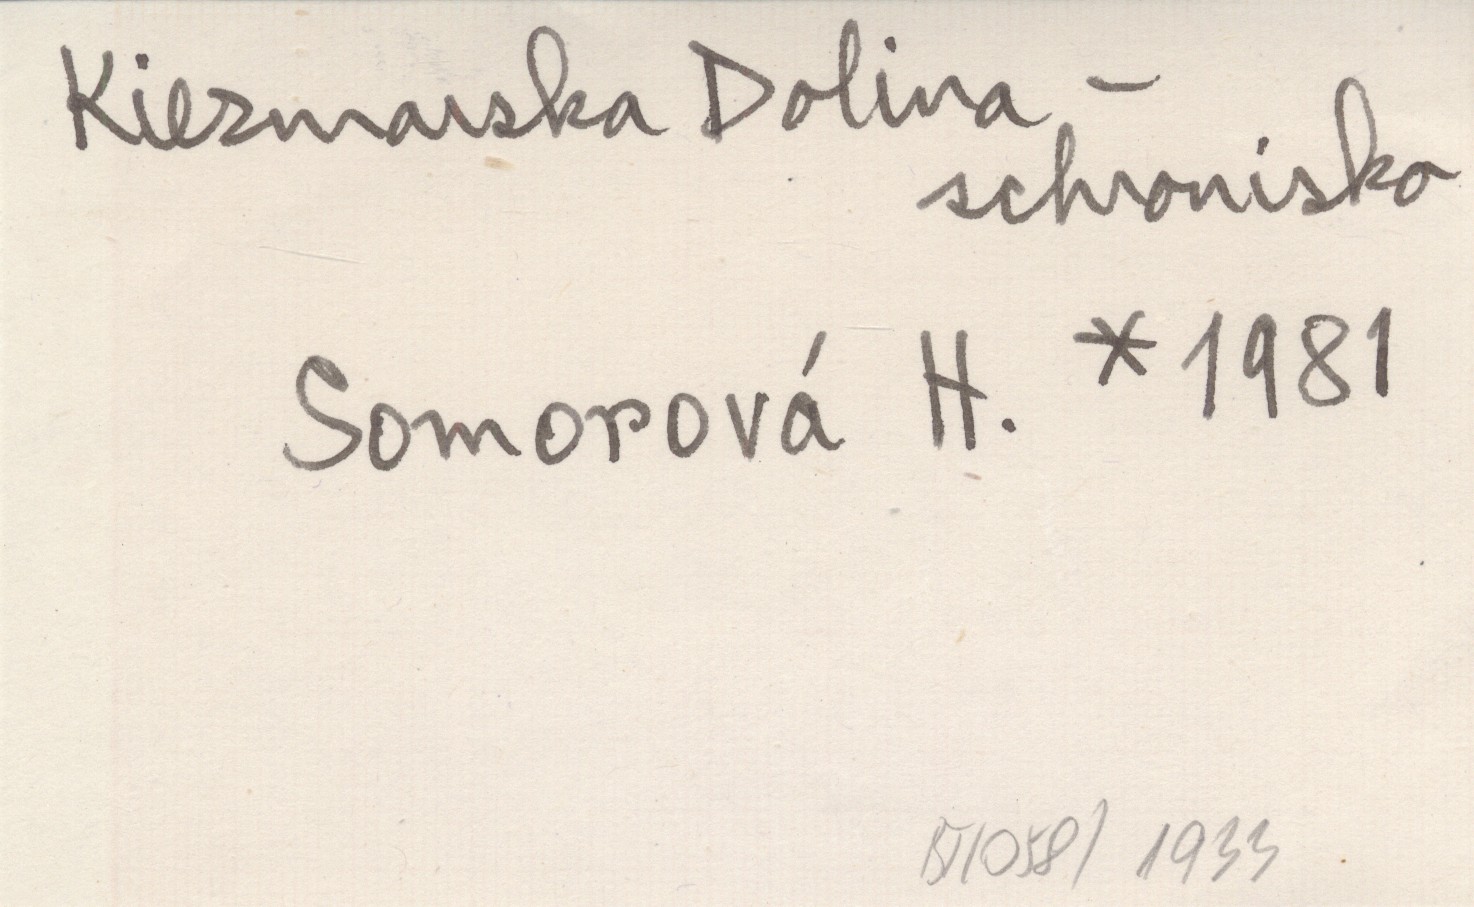 Kiezmarska Dolina –
schronisko
Somorová H. * 1981
1933